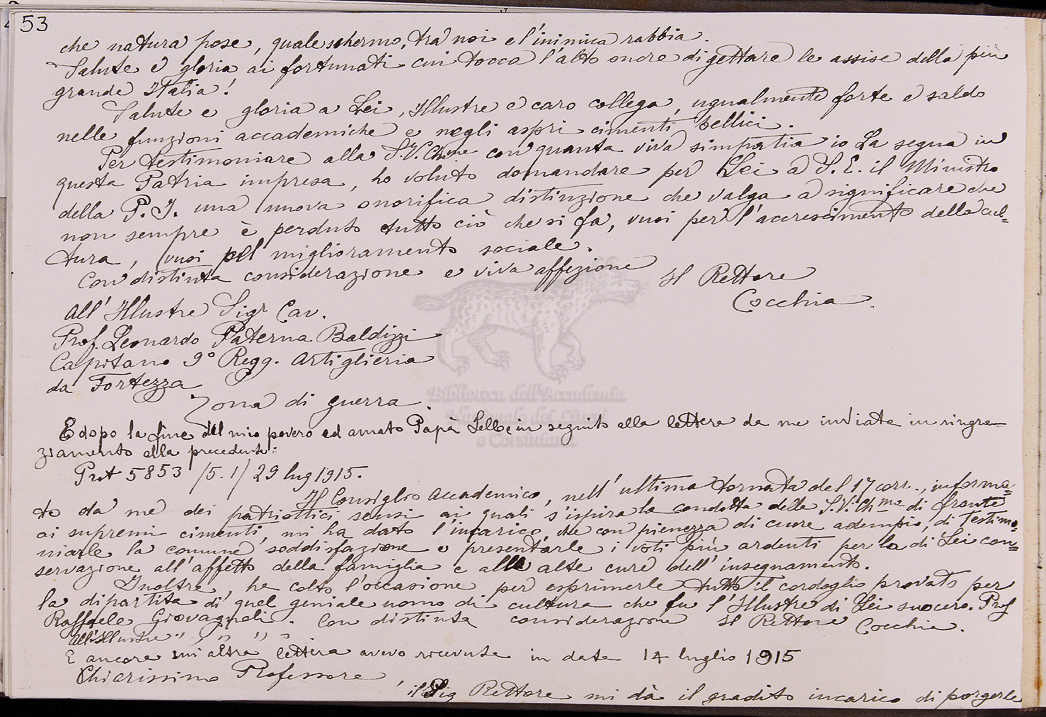 53
che natura pose, quale schermo, tra noi e l'inimica rabbia.
Salute e gloria ai fortunati cui tocca l'alto onore di gettare le assise della più
grande Italia!
Salute e gloria a Lei, Illustre e caro collega, ugualmente forte e saldo
nelle funzioni accademiche e negli aspri cimenti bellici.
Per testimoniare alla S.V. Ch.me con quanta viva simpatia io La segua in
questa Patria impresa, ho voluto domandare per Lei a S.E. il Ministro
della P.I. una nuova onorifica distinzione che valga a significare che
non sempre è perduto tutto ciò che si fa, vuoi per l'accrescimento della cul=
tura, vuoi pel miglioramento sociale.
Con distinta considerazione e viva affezione Il Rettore
Cocchia.
All'Illustre Sigr Cav.
Prof. Leonardo Paterna Baldizzi
Capitano 9º Regg. Artiglieria
da Fortezza
Zona di guerra.
Biblioteca dell'Accademia
Nazionale dei Lincei
e Corsiniana
E dopo la fine del mio povero ed amato Papà Lello, in seguito alla lettera da me inviata in ringra=
ziamento alla precedente:
Prot 5853 /5.1/ 29 lug 1915.
Il Consiglio Accademico, nell'ultima tornata del 17 corr., informa=
to da me dei patriottici sensi ai quali s'ispira la condotta della S.V. Ch.ma di fronte
ai supremi cimenti, mi ha dato l'incarico, che con pienezza di cuore adempio, di testimo=
niarle la comune soddisfazione e presentarle i voti più ardenti per la di Lei con=
servazione all'affetto della famiglia e alle alte cure dell'insegnamento.
Inoltre ha colto l'occasione per esprimerle tutto il cordoglio provato per
la dipartita di quel geniale uomo di cultura che fu l'Illustre di Lei suocero. Prof
Raffaele Giovagnoli. Con distinta considerazione Il Rettore Cocchia.
All'Illustre " " "
E ancora un'altra lettera avevo ricevuta in data 14 luglio 1915
Chiarissimo Professore
il Sig Rettore mi dà il gradito incarico di porgerle